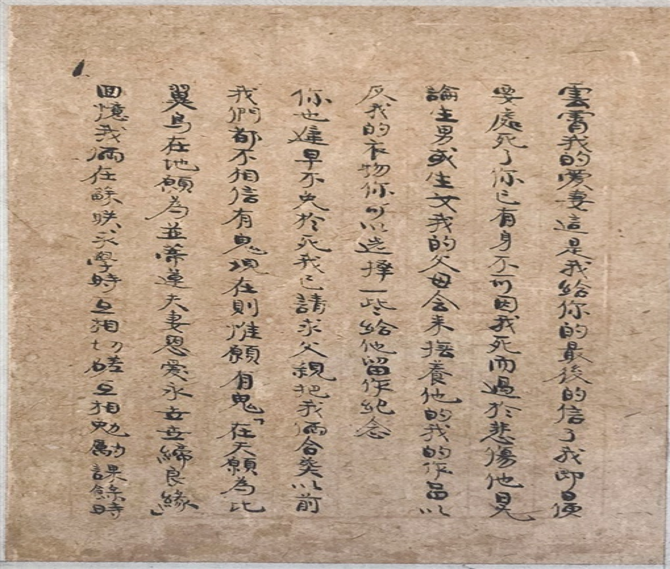 雲霄我的愛妻這是我給你的最後的信了我即日便
要處死了你已有身不可因我死而過於悲傷他日無
論生男或生女我的父母會來撫養他的我的作品以
及我的衣物你可以选擇一些給他留作紀念
你也遲早不免於死我已請求父親把我倆合葬以前
我們都不相信有鬼現在則惟願有鬼「在天願為比
翼鳥在地願為並蒂蓮夫妻恩愛永世世締良緣」
回憶我倆在蘇聯求學時互相切磋互相勉勵課餘時